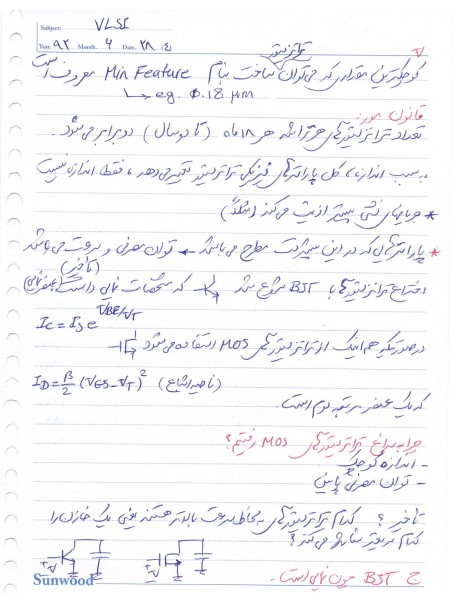 Subject: VLSI
Year. ۹۲ Month. ۶ Date. ۲۸
ترانزیستور
کوچکترین مقداری که می‌توان ساخت بنام Min Feature معروف است
↳ eg. 0.18 μm
قانون مور:
تعداد ترانزیستورهای هر تراشه هر ۱۸ ماه (تا دو سال) دو برابر می‌شود.
به سبب اندازه، کل پارامترهای فیزیکی ترانزیستور تغییر می‌دهد، فقط اندازه نیست
* جریانهای نشتی بیشتر اذیت می‌کند (مثلاً)
* پارامترهایی که در این پیشرفت مطرح می‌باشد ← توان مصرفی و سرعت می‌باشد
(تأخیر)
اختراع ترانزیستورها با BJT شروع شد که مشخصات نمایی داشت (عنصر نمایی)
Ic = Is e^VBE/VT
در صورتیکه هم اینک از ترانزیستورهای MOS استفاده می‌شود
ID = β/2 (VGS - VT)² (ناحیه اشباع)
که یک عنصر مرتبه دوم است.
چرا به سراغ ترانزیستورهای MOS رفتیم؟
- اندازه کوچک
- توان مصرفی پایین
تأخیر؟ کدام ترانزیستورها به لحاظ سرعت بالاتر هستند یعنی یک خازن را
کدام سریعتر شارژ می‌کند؟
+V +V
ج BJT چون نمایی است.
Sunwood